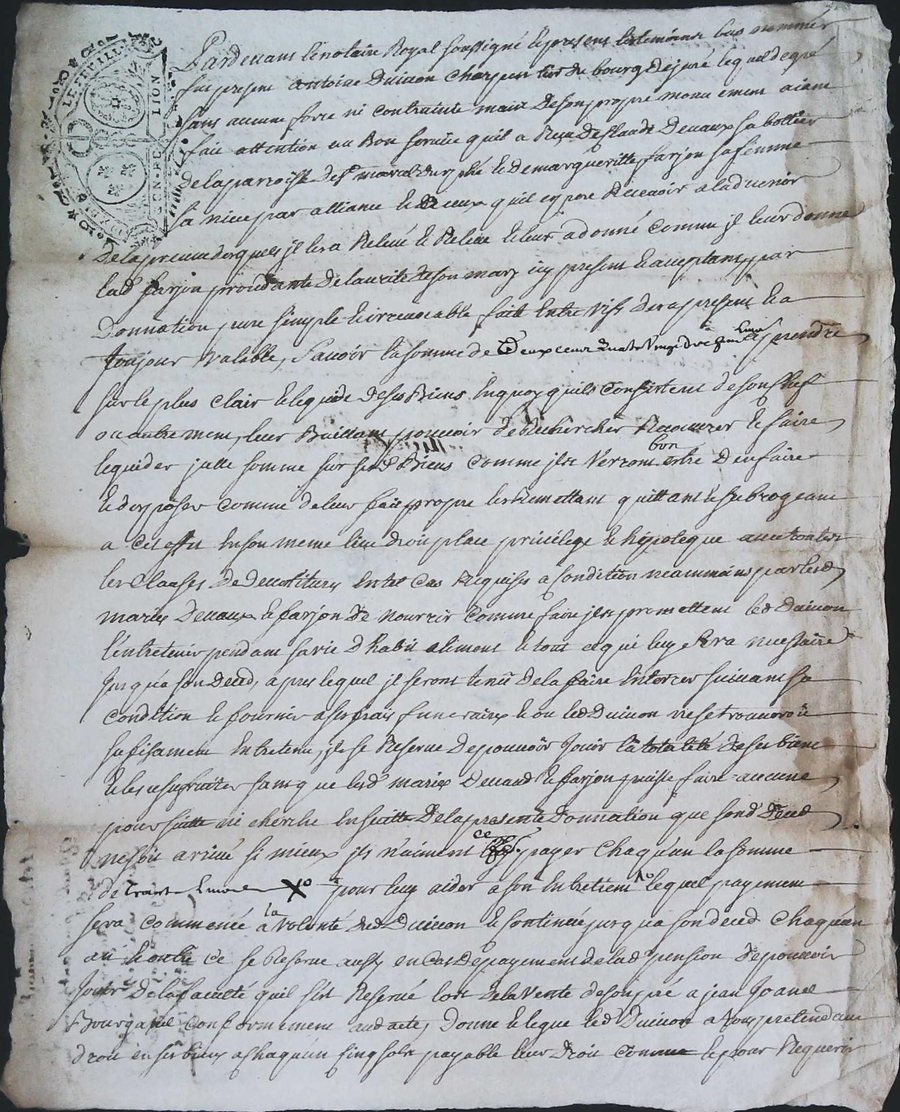 Pardevant le notaire Royal soussigné le presens tesmoins bas nommes
fut present antoine Duivon Charpentier du bourg de jurè lequel de gre
sans aucune force ni contrainte mais de son propre mouvement aiant
fait attention au Bon service quil a Reçu de Claude Devaux sabottier
de la parroisse de st marcel durphé et de margueritte farjon sa femme
sa niece par alliance et de ceux quil espere Recevoir a ladvenir
de la preuve desquels il les a Relevé et Releve et leur a donné comme jl leur donne
lad farjon procedante de lautorité de son mary icy present et acceptant par
Donnation pure simple et irrevocable faitte entre vifs des a present et a
Toujour valable, Sauoir la somme de Deux cent quatre vingt dix a prendre
sur le plus clair et lequide de ses Biens en quoy quils Consistent de son chef
ou autrement leur Baillant pouvoir de Rechercher Recouvrer et faire
lequider jcelle somme sur sesd Biens comme jls Verront bon estre d en faire
et disposer comme de leur fait propre les Remettant quittant et subrogeant
a cet effet en son meme lieu droit place privilege et hipoteque avec toutes
les Clauses de devestiture en tel cas Requises a condition neammoins par lesd
mariés Devaux et farjon de nourrir comme faire jls promettent led Duivon
lentretenir pendant sa vie d habit aliment et tout ce qui luy sera necessaire
jusqua son deced, apres lequel jl seront tenu de la faire enterrer suivant sa
condition et fournir a ses frais funeraires et ou led Duivon ne se trouveroit
sufisament entretenu, jl se Reserve de pouvoir jouir la totalité de ses biens
et les usufruiter sans que lesd mariés Devaux et farjon puisse faire aucune
poursuitte ni cherche en suitte de la presente Donnation que sond deced
ne soit arrivé si mieux ils n'aiment ce payer chaquan la somme
de trante livres pour luy aider a son entretien lequel payement
sera commencé a la volonté dud Duivon et continué jusqua son deced chaquan
an et outre ce se Reserve aussy en cas de payement de lad pension de pouvoir
jouir de la faculté quil s'est Reservé lors de la vente de son pré a jean
Bourganel conformement aud acte, donne et legue led Duivon a tous pretendant
droit en ses biens a chaquun cinq sols payable leur droit comme le pour Requerir